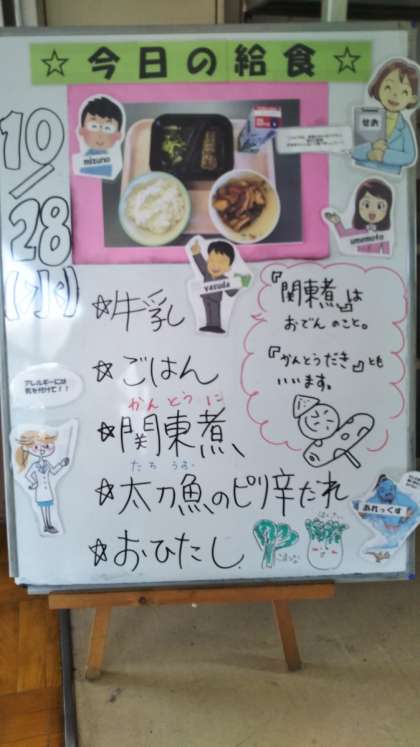 ☆今日の給食☆
10/28
(水)
mizuno
せお
umemoto
yasuda
☆牛乳
☆ごはん
かんとうに
☆関東煮
たちうお
☆太刀魚のピリ辛だれ
☆おひたし
『関東煮』は
おでんのこと。
『かんとうだき』とも
いいます。
アレルギーには
気を付けて!!
あれっくす